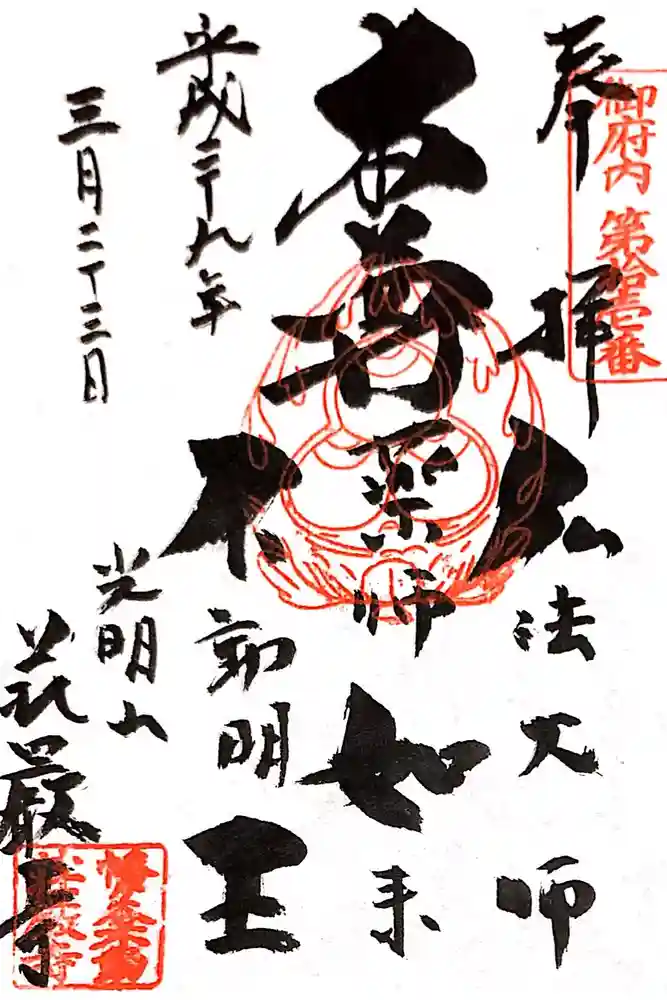 奉拝
御府内第拾壱番
弘法大師
本尊薬師如来
不動明王
平成二十九年
三月二十三日
光明山
荘厳寺